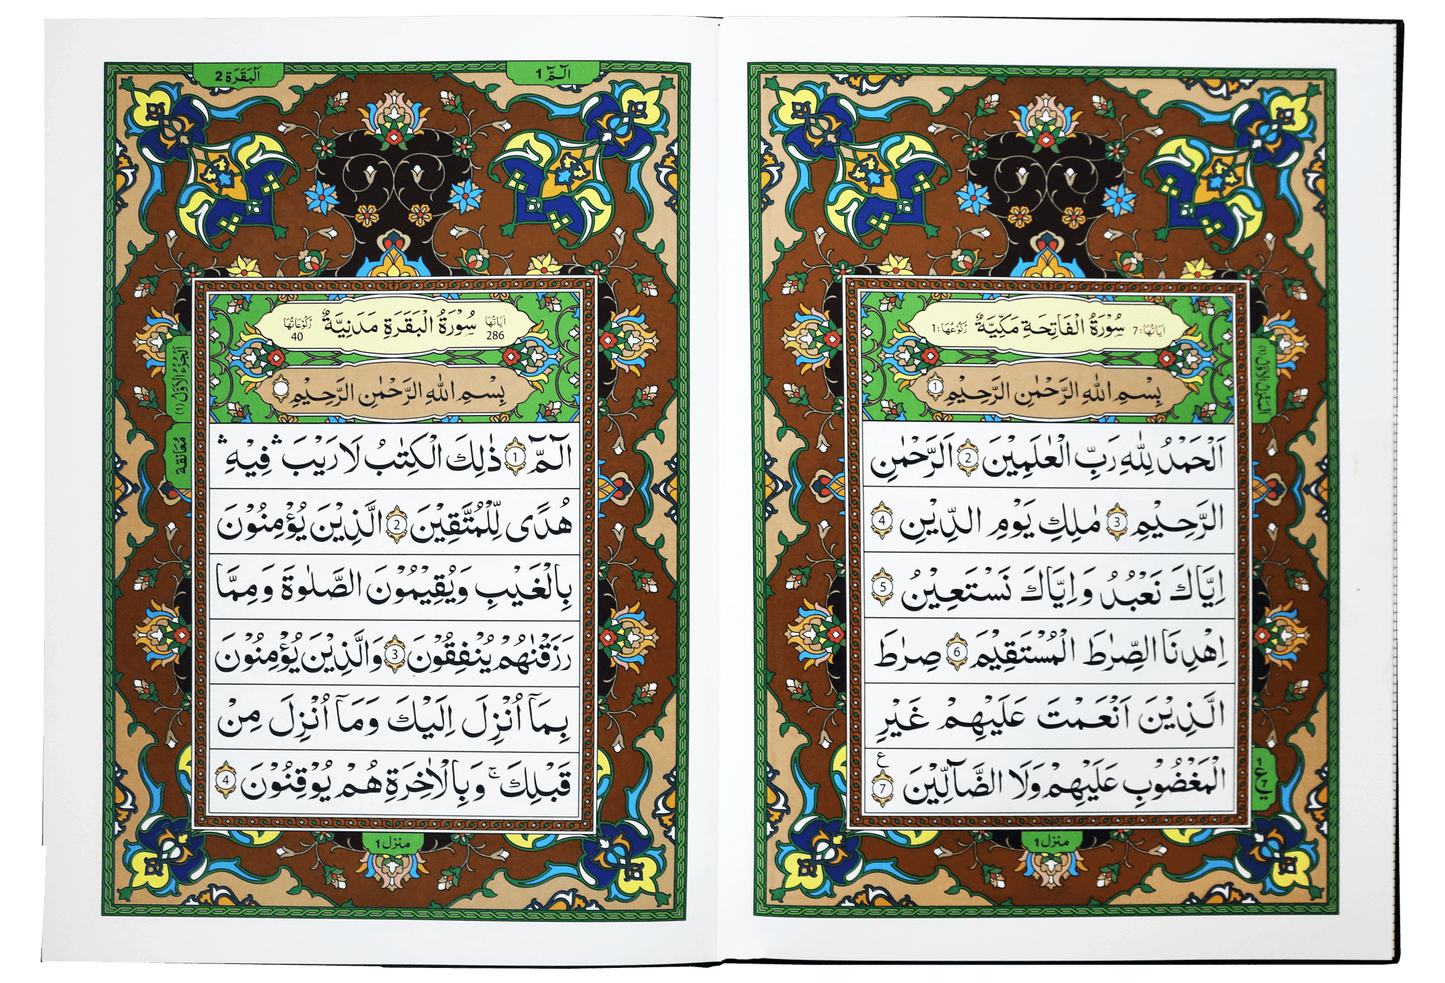 سُوْرَةُ الْفَاتِحَةِ مَكِّيَّةٌ
اٰيَاتُهَا: 7
رُكُوْعُهَا: 1
بِسْمِ اللّٰهِ الرَّحْمٰنِ الرَّحِيْمِ ۝1
اَلْحَمْدُ لِلّٰهِ رَبِّ الْعٰلَمِيْنَ ۝2 الرَّحْمٰنِ
الرَّحِيْمِ ۝3 مٰلِكِ يَوْمِ الدِّيْنِ ۝4
اِيَّاكَ نَعْبُدُ وَاِيَّاكَ نَسْتَعِيْنُ ۝5
اِهْدِنَا الصِّرَاطَ الْمُسْتَقِيْمَ ۝6 صِرَاطَ
الَّذِيْنَ اَنْعَمْتَ عَلَيْهِمْ غَيْرِ
الْمَغْضُوْبِ عَلَيْهِمْ وَلَا الضَّآلِّيْنَ ۝7
ع
منزل 1
الٓمّٓ 1
اَلْبَقَرَة 2
سُوْرَةُ الْبَقَرَةِ مَدَنِيَّةٌ
اٰيَاتُهَا 286
رُكُوْعَاتُهَا 40
بِسْمِ اللّٰهِ الرَّحْمٰنِ الرَّحِيْمِ
الٓمّٓ ۝1 ذٰلِكَ الْكِتٰبُ لَا رَيْبَ ۛ فِيْهِ ۛ
هُدًى لِّلْمُتَّقِيْنَ ۝2 الَّذِيْنَ يُؤْمِنُوْنَ
بِالْغَيْبِ وَيُقِيْمُوْنَ الصَّلٰوةَ وَمِمَّا
رَزَقْنٰهُمْ يُنْفِقُوْنَ ۝3 وَالَّذِيْنَ يُؤْمِنُوْنَ
بِمَآ اُنْزِلَ اِلَيْكَ وَمَآ اُنْزِلَ مِنْ
قَبْلِكَ ۚ وَبِالْاٰخِرَةِ هُمْ يُوْقِنُوْنَ ۝4
اَلْجُزْءُ الْاَوَّلُ (1)
مُعَانقة
منزل 1